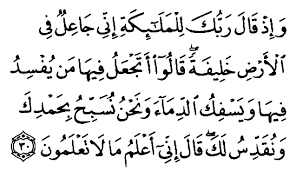 وَإِذْ قَالَ رَبُّكَ لِلْمَلَٰٓئِكَةِ إِنِّى جَاعِلٌ فِى
ٱلْأَرْضِ خَلِيفَةً ۖ قَالُوٓا۟ أَتَجْعَلُ فِيهَا مَن يُفْسِدُ
فِيهَا وَيَسْفِكُ ٱلدِّمَآءَ وَنَحْنُ نُسَبِّحُ بِحَمْدِكَ
وَنُقَدِّسُ لَكَ ۖ قَالَ إِنِّىٓ أَعْلَمُ مَا لَا تَعْلَمُونَ ٣٠